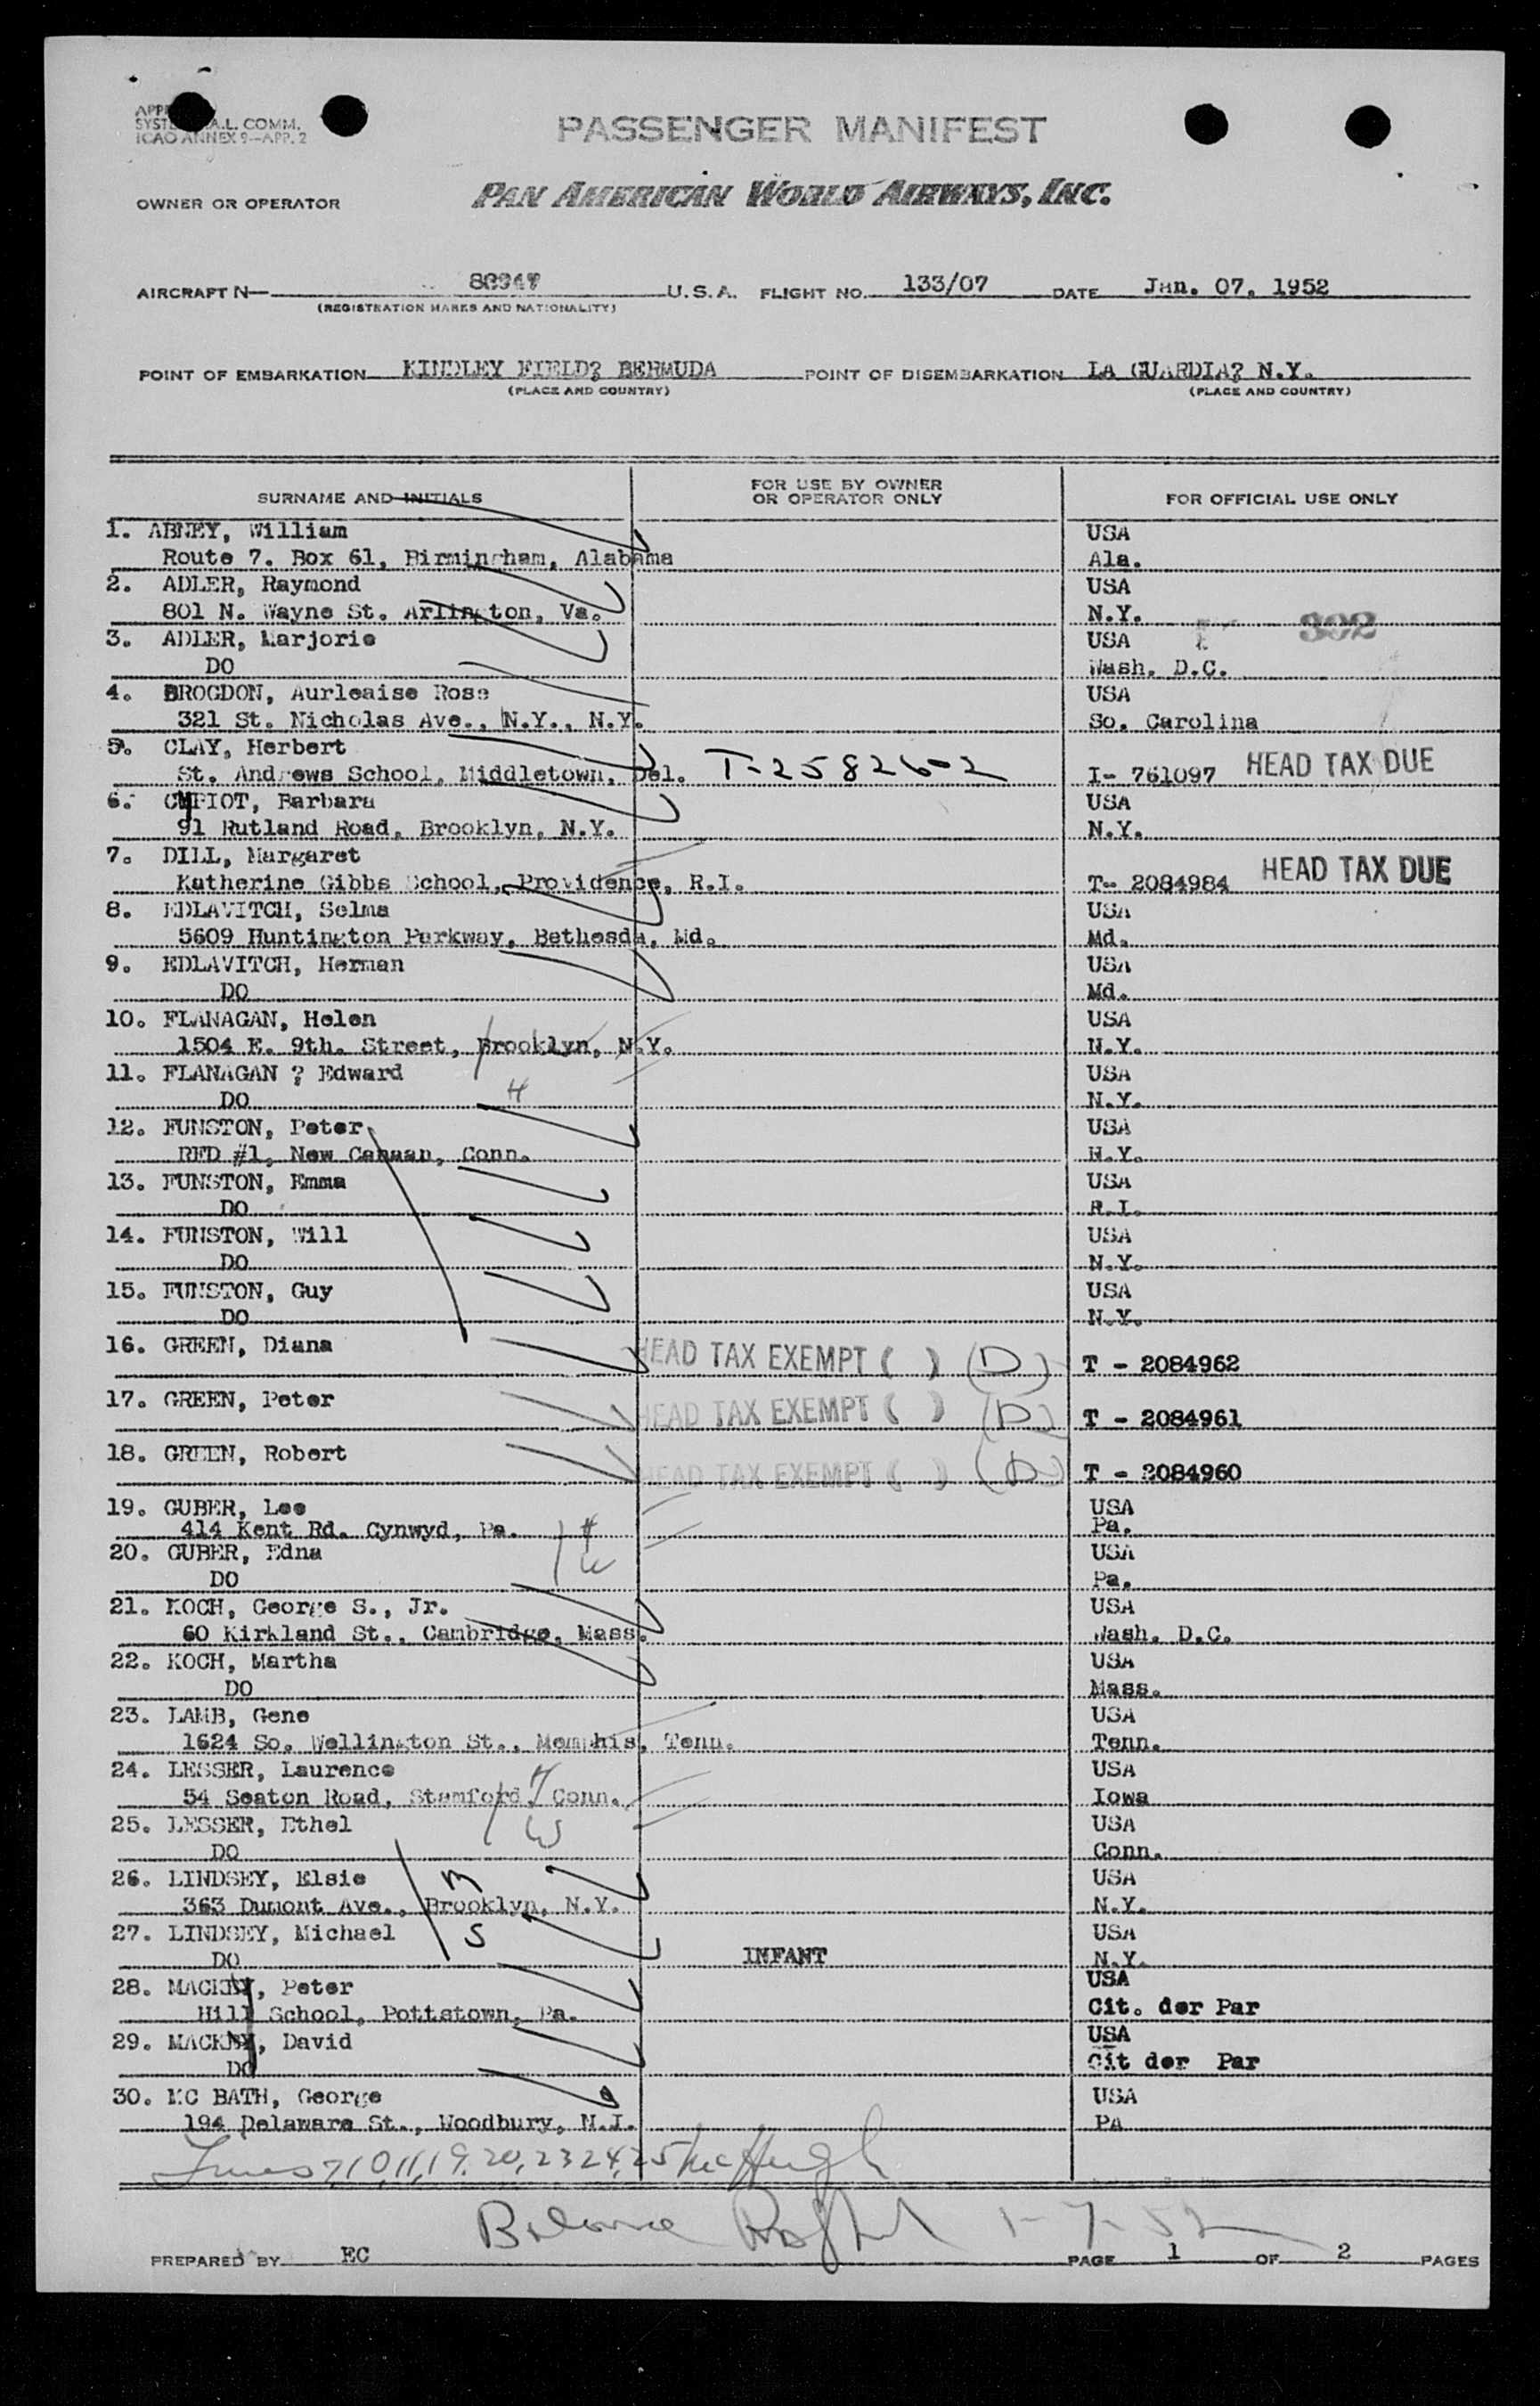 SYST A.L. COMM.
ICAO ANNEX 9-APP. 2
PASSENGER MANIFEST
OWNER OR OPERATOR PAN AMERICAN WORLD AIRWAYS, INC.
AIRCRAFT N- U.S.A. FLIGHT NO. 133/07 DATE Jan. 07, 1952
(REGISTRATION MARKS AND NATIONALITY)
POINT OF EMBARKATION KINDLEY FIELD? BERMUDA POINT OF DISEMBARKATION LA GUARDIA? N.Y.
(PLACE AND COUNTRY) (PLACE AND COUNTRY)
SURNAME AND INITIALS FOR USE BY OWNER OR OPERATOR ONLY FOR OFFICIAL USE ONLY
1. ABNEY, William USA
Route 7. Box 61, Birmingham, Alabama Ala.
2. ADLER, Raymond USA
801 N. Wayne St. Arlington, Va. N.Y. 302
3. ADLER, Marjorie USA
DO Wash, D.C.
4. BROGDON, Aurleaise Rose USA
321 St. Nicholas Ave., N.Y., N.Y. So. Carolina
5. CLAY, Herbert
St. Andrews School, Middletown, Del. T-2582602 I- 761097 HEAD TAX DUE
6. Barbara USA
91 Rutland Road, Brooklyn, N.Y. N.Y.
7. DILL, Margaret
Katherine Gibbs School, Providence, R.I. T- 2084984 HEAD TAX DUE
8. EDLAVITCH, Selma USA
5609 Huntington Parkway, Bethesda, Md. Md.
9. EDLAVITCH, Herman USA
DO Md.
10. FLANAGAN, Helen USA
1504 E. 9th. Street, Brooklyn, N.Y. N.Y.
11. FLANAGAN ? Edward USA
DO H N.Y.
12. FUNSTON, Peter USA
RFD #1, New Canaan, Conn. N.Y.
13. FUNSTON, Emma USA
DO R.I.
14. FUNSTON, Will USA
DO N.Y.
15. FUNSTON, Guy USA
DO N.Y.
16. GREEN, Diana HEAD TAX EXEMPT ( ) (D) T - 2084962
17. GREEN, Peter HEAD TAX EXEMPT ( ) (D) T - 2084961
18. GREEN, Robert HEAD TAX EXEMPT ( ) (D) T - 2084960
19. GUBER, Lee USA
414 Kent Rd. Cynwyd, Pa. H Pa.
20. GUBER, Edna W USA
DO Pa.
21. KOCH, George S., Jr. USA
60 Kirkland St., Cambridge, Mass. Wash. D.C.
22. KOCH, Martha USA
DO Mass.
23. LAMB, Gene USA
1624 So. Wellington St., Memphis, Tenn. Tenn.
24. LESSER, Laurence USA
54 Seaton Road, Stamford, Conn. H Iowa
25. LESSER, Ethel W USA
DO Conn.
26. LINDSEY, Elsie M USA
363 Dumont Ave., Brooklyn, N.Y. N.Y.
27. LINDSEY, Michael S USA
DO INFANT N.Y.
28. Peter USA
Hill School, Pottstown, Pa. Cit. der Par
29. David USA
DO Cit der Par
30. MC BATH, George USA
194 Delaware St., Woodbury, N.J. PA
Lines 7,10,11,19,20,23 24,25 McHugh
1-7-52
PREPARED BY EC PAGE 1 OF 2 PAGES